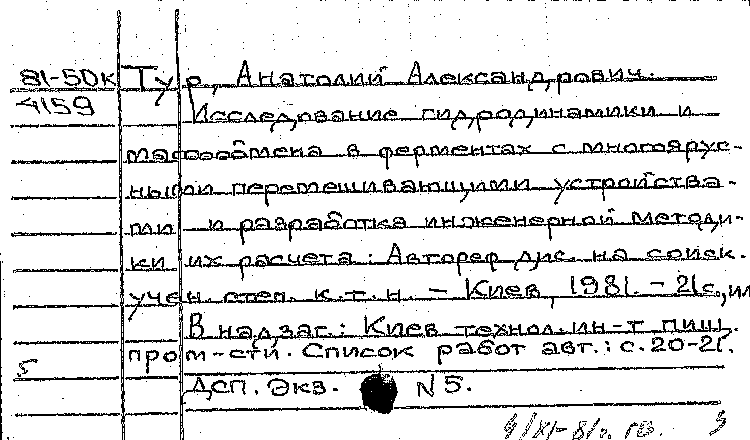 81-50к Тур, Анатолий Александрович.
4159 Исследование гидродинамики и
массообмена в ферментах с многоярус-
ными перемешивающими устройства-
ми и разработка инженерной методи-
ки их расчета: Автореф дис. на соиск.
учен. степ. к.т.н. - Киев, 1981. - 21с., ил
В надзаг.: Киев технол. ин-т пищ.
пром-сти. Список работ авт.: с. 20-21.
5
ДСП. Экз. N 5.